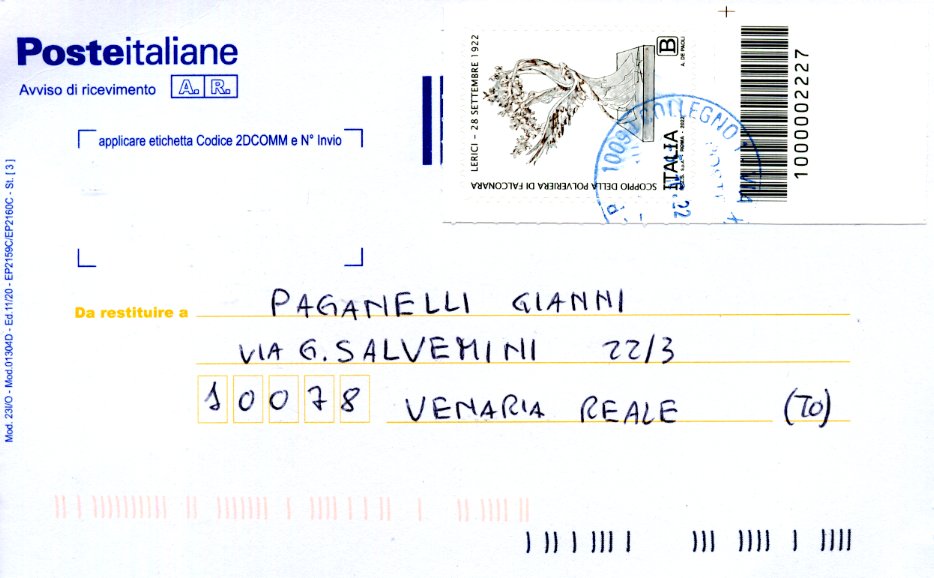 Posteitaliane
Avviso di ricevimento A. R.
applicare etichetta Codice 2DCOMM e N° Invio
LERICI - 28 SETTEMBRE 1922
SCOPPIO DELLA POLVERIERA DI FALCONARA
B
A. DE PAOLI
ITALIA
ROMA - 2022
COLLEGNO
22
1000002227
Da restituire a PAGANELLI GIANNI
VIA G. SALVEMINI 22/3
10078 VENARIA REALE (TO)
Mod. 23I/O - Mod.01304D - Ed.11/20 - EP2159C/EP2160C - St. [3]